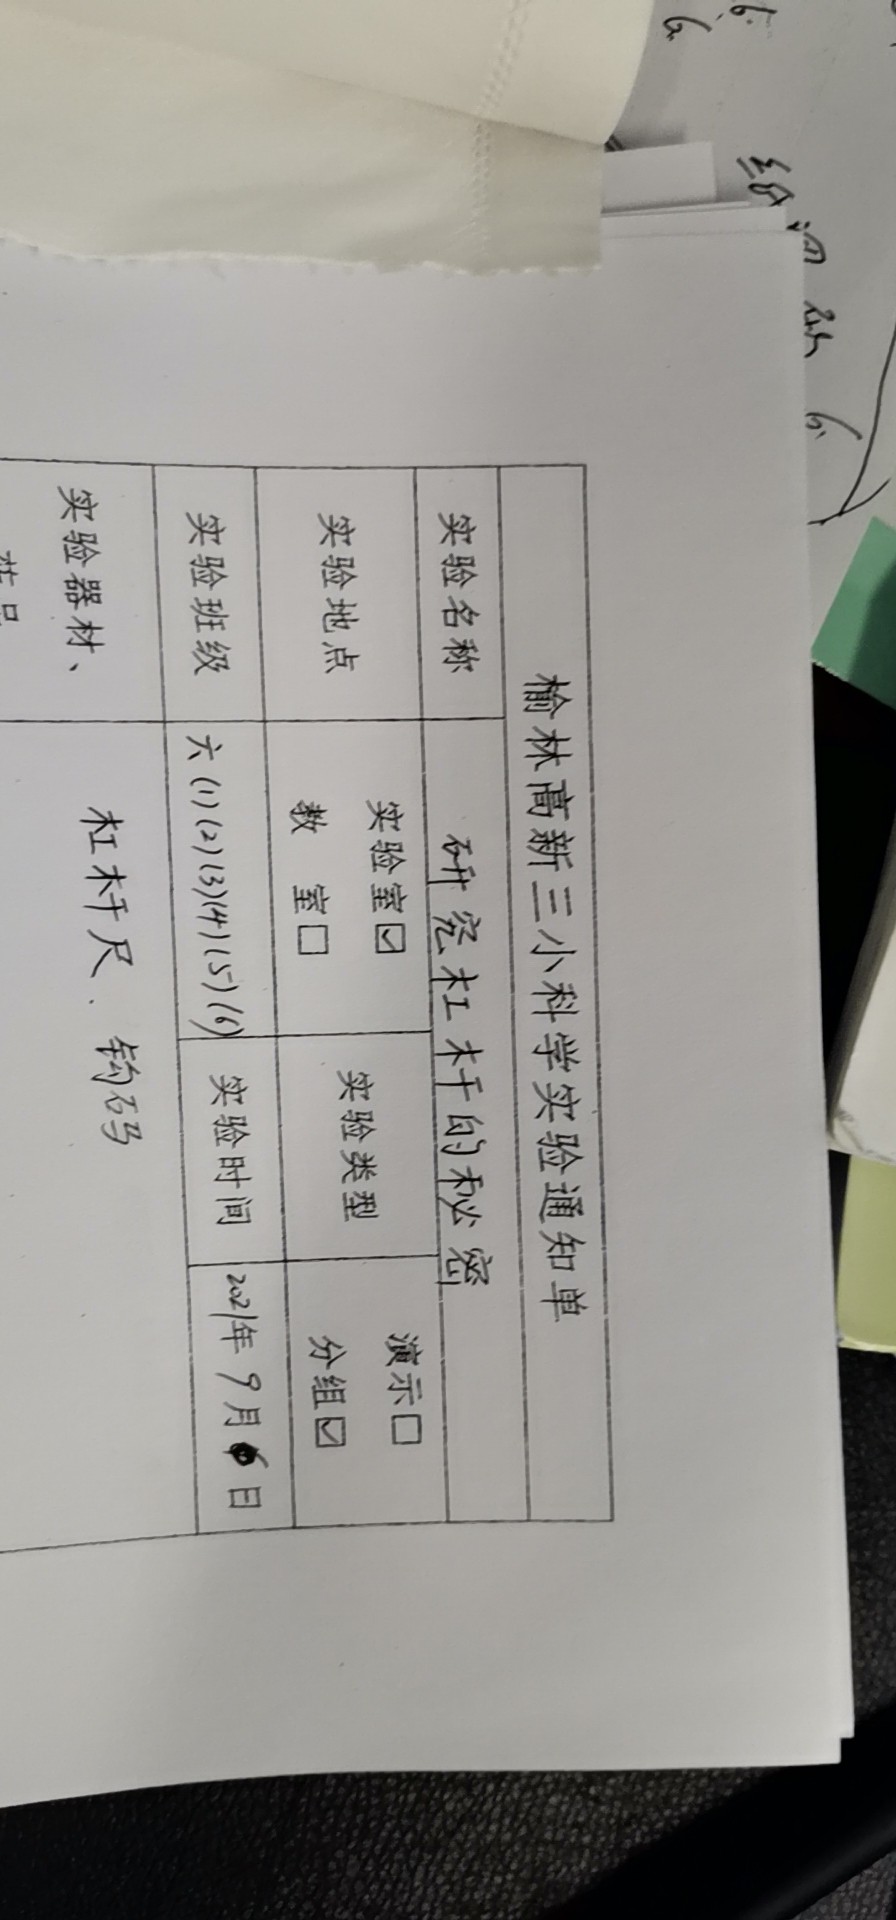 榆林高新三小科学实验通知单
实验名称 研究杠杆的秘密
实验地点 实验室☑ 教 室☐ 实验类型 演示☐ 分组☑
实验班级 六(1)(2)(3)(4)(5)(6) 实验时间 2021年9月6日
实验器材、 杠杆尺、钩码